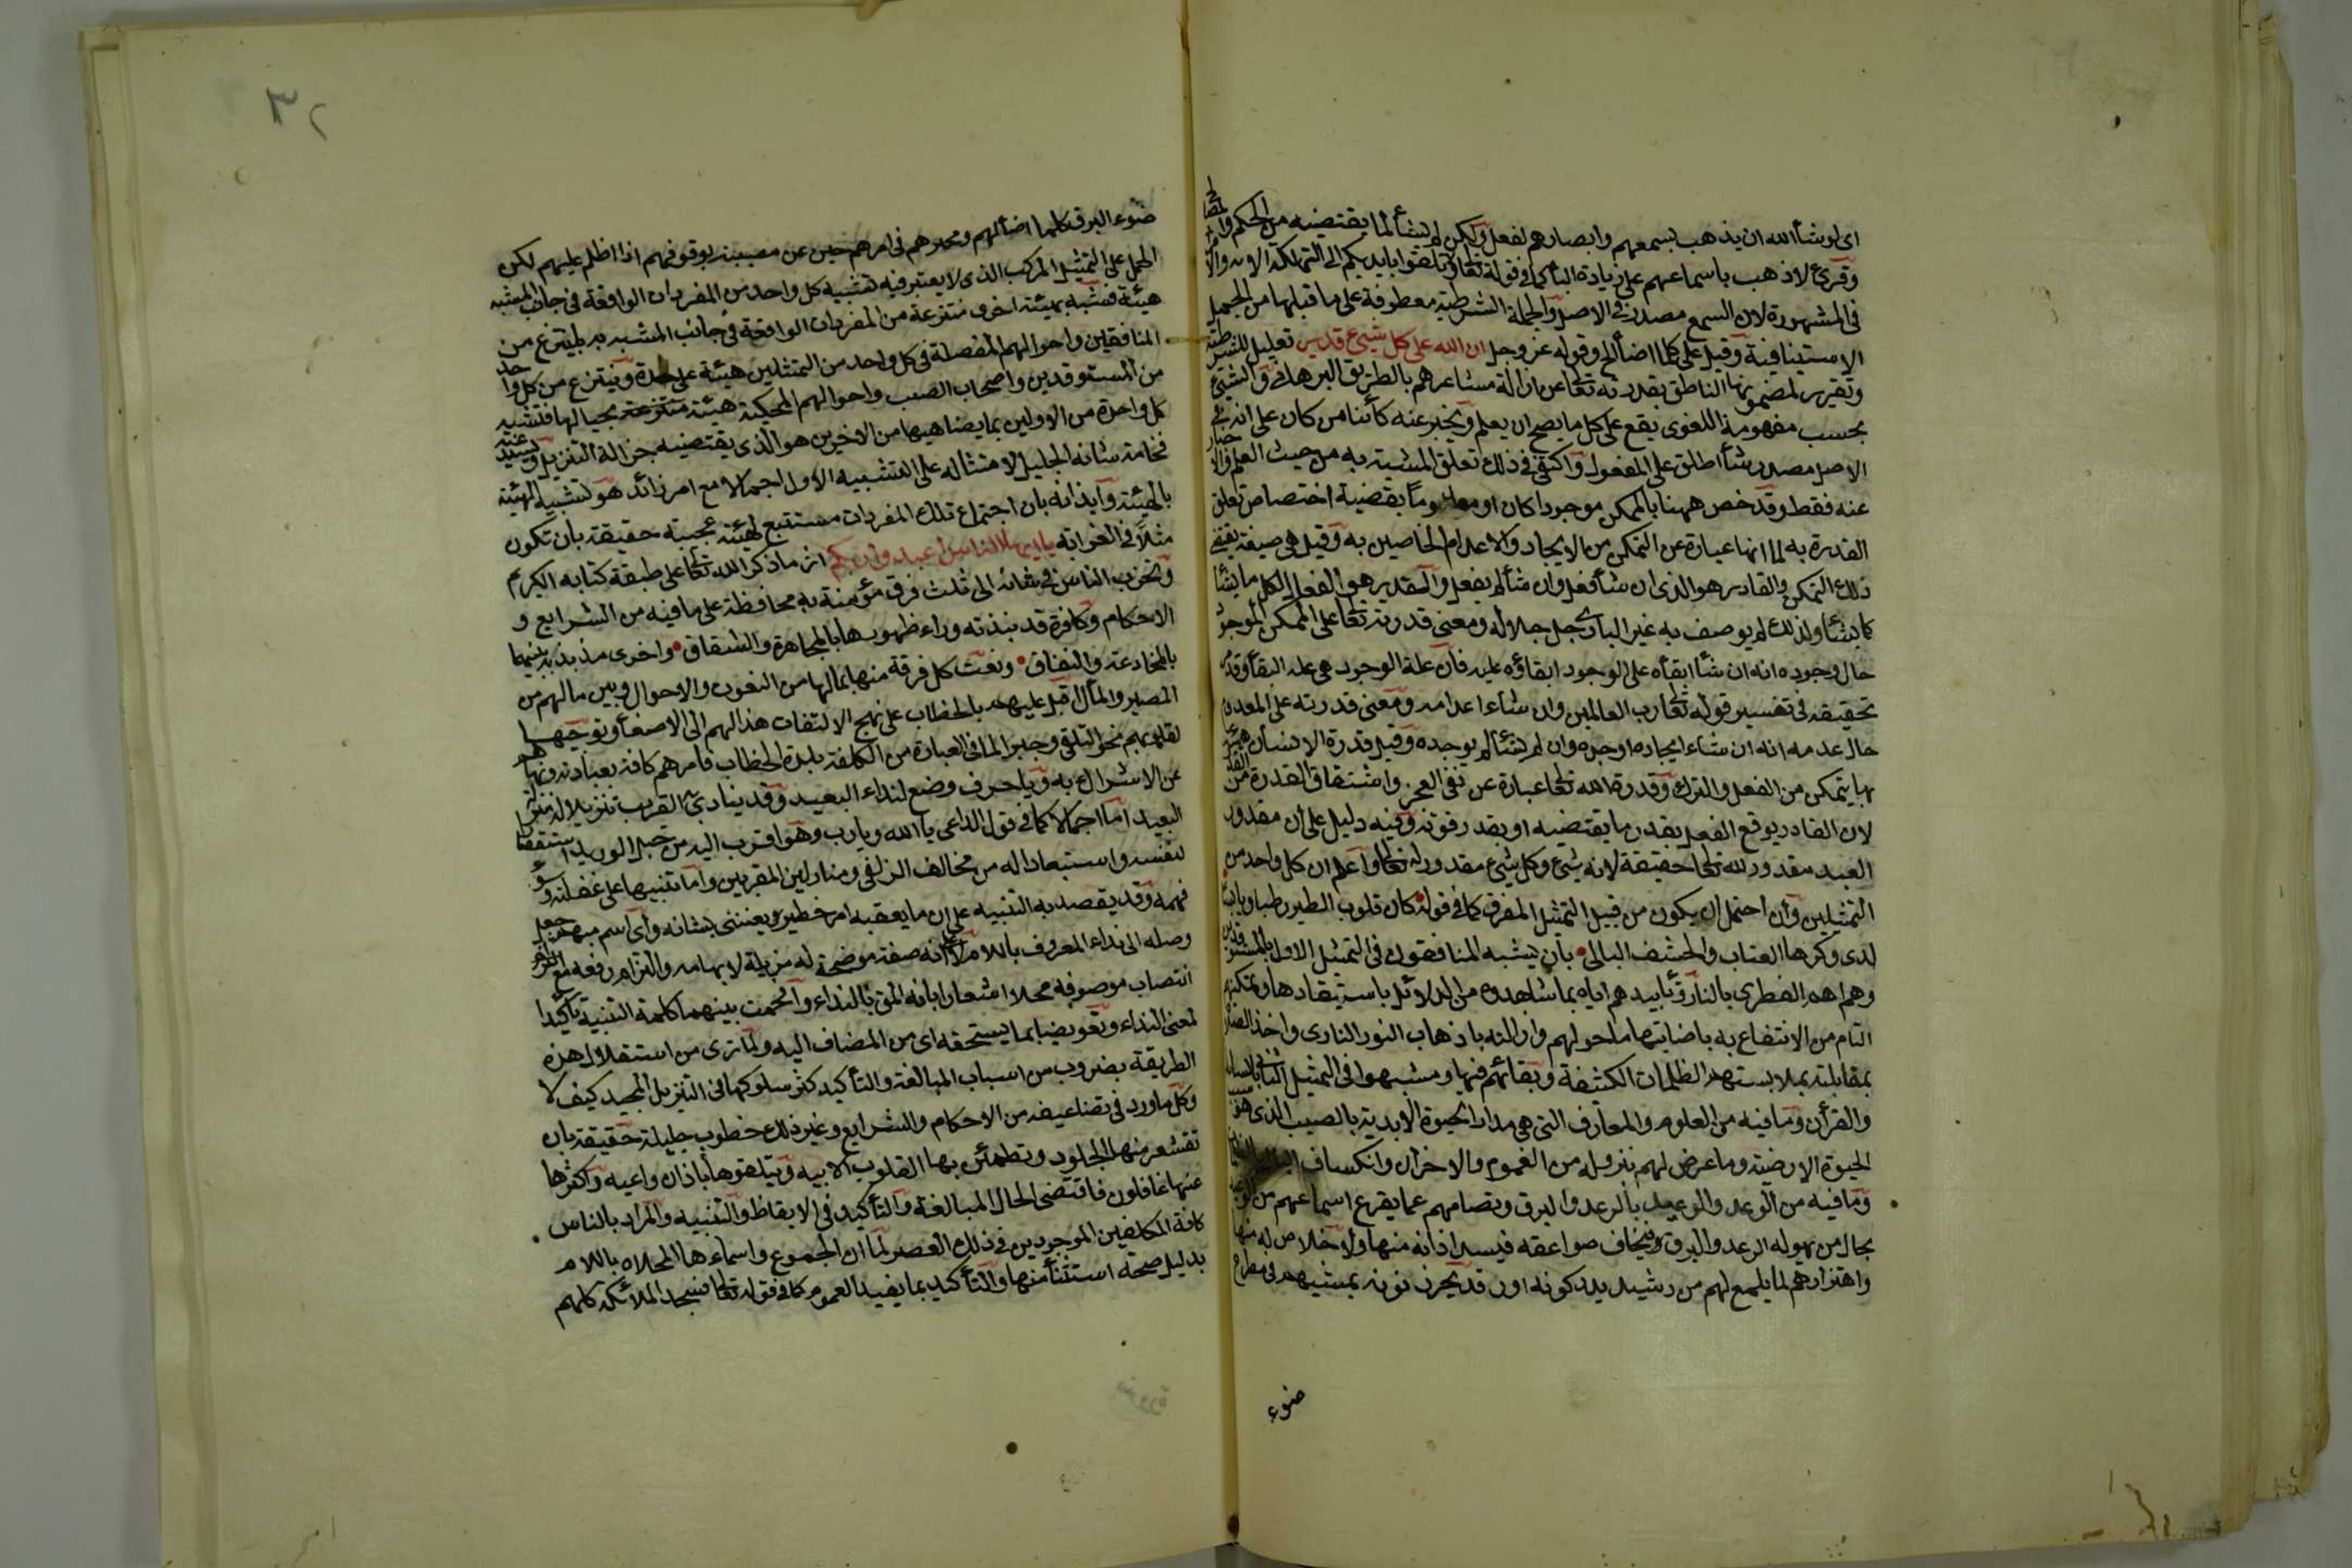 اى لو شاء الله ان يذهب بسمعهم وابصارهم لفعل ولكن لم يشأ لما يقتضيه من الحكم والمصالح
وقرئ لاذهب باسماعهم على زيادة الباء كما فى قوله تعالى ولا تلقوا بايديكم الى التهلكة
فى المشهورة لان السمع مصدر فى الاصل والجملة الشرطية معطوفة على ما قبلها من الجمل
الاستينافية وقيل على كلما اضاء الخ وقوله عز وجل ان الله على كل شيئ قدير تعليل للشرطية
وتقرير لمضمونها الناطق بقدرته تعالى على ازالة مشاعرهم بالطريق البرهانى والشيئ
بحسب مفهومه اللغوى يقع على كل ما يصح ان يعلم ويخبر عنه كائنا من كان على انه فى
الاصل مصدر شاء اطلق على المفعول واكتفى فى ذلك تعلق المشية به من حيث العلم والاخبار
عنه فقط وقد خص ههنا بالممكن موجودا كان او معدوماً بقضية اختصاص تعلق
القدرة به لما انها عبارة عن التمكن من الايجاد والاعدام الخاصين به وقيل هى صيفة تقتضى
ذلك التمكن والقادر هو الذى ان شاء فعل وان شاء لم يفعل والقدير هو الفعال لكل ما يشاء
كما يشاء ولذلك لم يوصف به غير البارى جل جلاله ومعنى قدرته تعالى على الممكن الموجود
حال وجوده انه ان شاء ابقاه على الوجود ابقاؤه عليه فان علة الوجود هى علة البقاء وقد مر
تحقيقه فى تفسير قوله تعالى رب العالمين وان شاء اعدامه ومعنى قدرته على المعدوم
حال عدمه انه ان شاء ايجاده اوجده وان لم يشأ لم يوجده وقيل قدرة الانسان هيئة
بها يتمكن من الفعل والترك وقدرة الله تعالى عبارة عن نفى العجز واشتقاق القدرة من القدر
لان القادر يوقع الفعل بقدر ما يقتضيه او بقدر قوته وفيه دليل على ان مقدور
العبد مقدور لله تعالى حقيقة لانه شيئ وكل شيئ مقدور له تعالى واعلم ان كل واحد من
التمثيلين وان احتمل ان يكون من قبيل التمثيل المفرق كما فى قوله كان قلوب الطير رطبا ويابسا
لدى وكرها العناب والحشف البالى بان يشبه المنافقون فى التمثيل الاول بالمستوقدين
وهداهم الفطرى بالنار وتأييدهم اياه بما شاهدوه من الدلائل باستيقادها وتمكنهم
التام من الانتفاع به باضاءتها ما حولهم وازالته باذهاب النور النارى واخذ الضلالة
بمقابلته بملابستهم الظلمات الكثيفة وبقائهم فيها ويشبهوا فى التمثيل الثانى بالسابلة
والقرآن وما فيه من العلوم والمعارف التى هى مدار الحيوة الابدية بالصيب الذى هو سبب
الحيوة الارضية وما عرض لهم بنزوله من الغموم والاحزان وانكساف البال
وما فيه من الوعد والوعيد بالرعد والبرق وتصامهم عما يقرع اسماعهم من الوعيد
بحال من يهوله الرعد والبرق فيخاف صواعقه فيسد اذانه منها ولا خلاص له منها
واهتزازهم لما يلمع لهم من رشد يدركونه او رفد يحرزونه بمشيهم فى مطرح
ضوء
٣٢
ضوء البرق كلما اضاء لهم وتحيرهم فى امرهم حين عن مصيبة بوقوفهم اذا اظلم عليهم لكن
الحمل على التمثيل المركب الذى لا يعتبر فيه تشبيه كل واحد من المفردات الواقعة فى جانب المشبه
هيئة فتشبه بهيئة اخرى منتزعة من المفردات الواقعة فى جانب المشبه به بل ينتزع من
المنافقين واحوالهم المفصلة فى كل واحد من التمثيلين هيئة على حدة وينتزع من كل واحد
من المستوقدين واصحاب الصيب واحوالهم المحكية هيئة منتزعة بحيالها فتشبه
كل واحدة من الاوليين بما يضاهيها من الاخريين هو الذى يقتضيه جزالة التنزيل ويستدعيه
فخامة شانه الجليل لاشتماله على التشبيه الاول اجمالا مع امر زائد هو تشبيه الهيئة
بالهيئة وايذانه بان اجتماع تلك المفردات مستتبع لهيئة عجيبة حقيقة بان تكون
مثلا فى الغرابة يا ايها الناس اعبدوا ربكم اثر ما ذكر الله تعالى علو طبقة كتابه الكريم
وتحزب الناس فى شانه الى ثلث فرق مؤمنة به محافظة على ما فيه من الشرايع و
الاحكام وكافرة قد نبذته وراء ظهورها بالمجاهرة والشقاق واخرى مذبذبة بينهما
بالمخادعة والنفاق ونعت كل فرقة منها بما لها من النعوت والاحوال وبين ما لهم من
المصير والمآل اقبل عليهم بالخطاب على نهج الالتفات هذا لهم الى الاصغاء وتوجيها
لقلوبهم نحو التلقى وجبرا لما فى العبادة من الكلفة بلذة الخطاب فامرهم كافة بعبادته ونهاهم
عن الاشراك به ويا حرف وضع لنداء البعيد وقد ينادى به القريب تنزيلا له منزلة
البعيد اما اجلالا كما فى قول الداعى يا الله ويا رب وهو اقرب اليه من حبل الوريد استقصارا
لنفسه واستبعادا له من محافل الزلفى ومنازل المقربين واما تنبيها على غفلته وسوء
فهمه وقد يقصد به التنبيه على ان ما يعقبه امر خطير ويعتنى بشانه واى اسم مبهم جعل
وصلة الى نداء المعروف باللام لا على انه صفة موضحة له مزيلة لابهامه والتزام رفعه مع
انتصاب موصوفه محلا اشعارا بانه المق بالنداء واقحمت بينهما كلمة التنبيه تأكيدا
لمعنى النداء وتعويضا بما يستحقه اى من المضاف اليه ولما ترى من استقلال هذه
الطريقة بضروب من اسباب المبالغة والتأكيد كثر سلوكها فى التنزيل المجيد كيف لا
وكل ما ورد فى تضاعيفه من الاحكام والشرايع وغير ذلك خطوب جليلة حقيقة بان
تقشعر منها الجلود وتطمئن بها القلوب الابيه ويتلقوها باذان واعيه واكثرها
عنها غافلون فاقتضى الحال المبالغة والتأكيد فى الايقاظ والتنبيه والمراد بالناس
كافة المكلفين الموجودين فى ذلك العصر لما ان الجموع واسماءها المحلاه باللام
بدليل صحة استثناء منها والتأكيد بما يفيد العموم كما فى قوله تعالى فسجد الملائكة كلهم